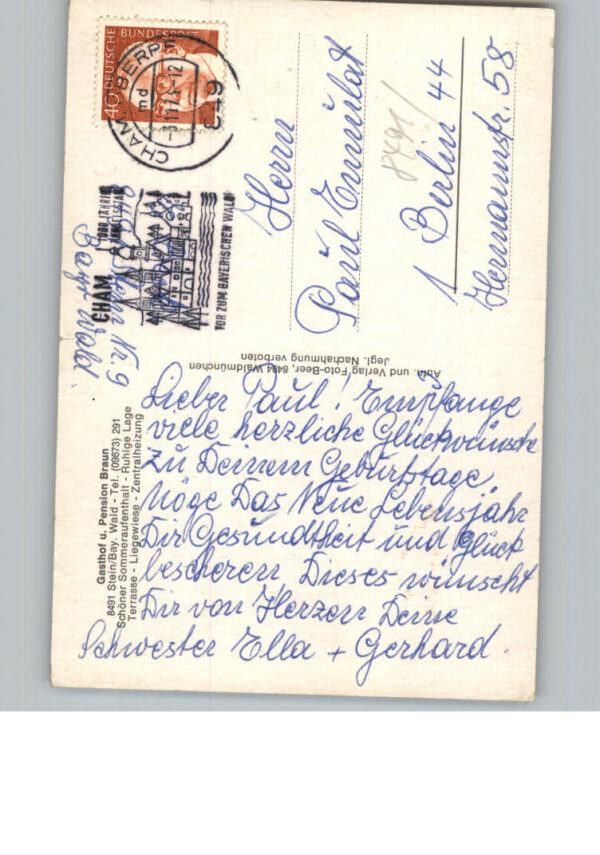 Gasthof u. Pension Braun
8491 Stein/Bay. Wald - Tel. (09673) 291
Schöner Sommeraufenthalt - Ruhige Lage
Terrasse - Liegewiese - Zentralheizung
Lieber Paul! Empfange
viele herzliche Glückwünsche
zu Deinem Geburtstage
Möge Das Neue Lebensjahr
Dir Gesundheit und Glück
bescheren Dieses wünscht
Dir von Herzen Deine
Schwester Ella + Gerhard.
Nr. 9
Bayr. Wald.
Aufn. und Verlag Foto-Beer, 8494 Waldmünchen
Jegl. Nachahmung verboten
DEUTSCHE BUNDESPOST
40
CHAM
849
md
CHAM
1000 JÄHRIGE
TOR ZUM BAYERISCHEN WALD
8491
Herrn
Paul
1 Berlin 44
Hermannstr. 58